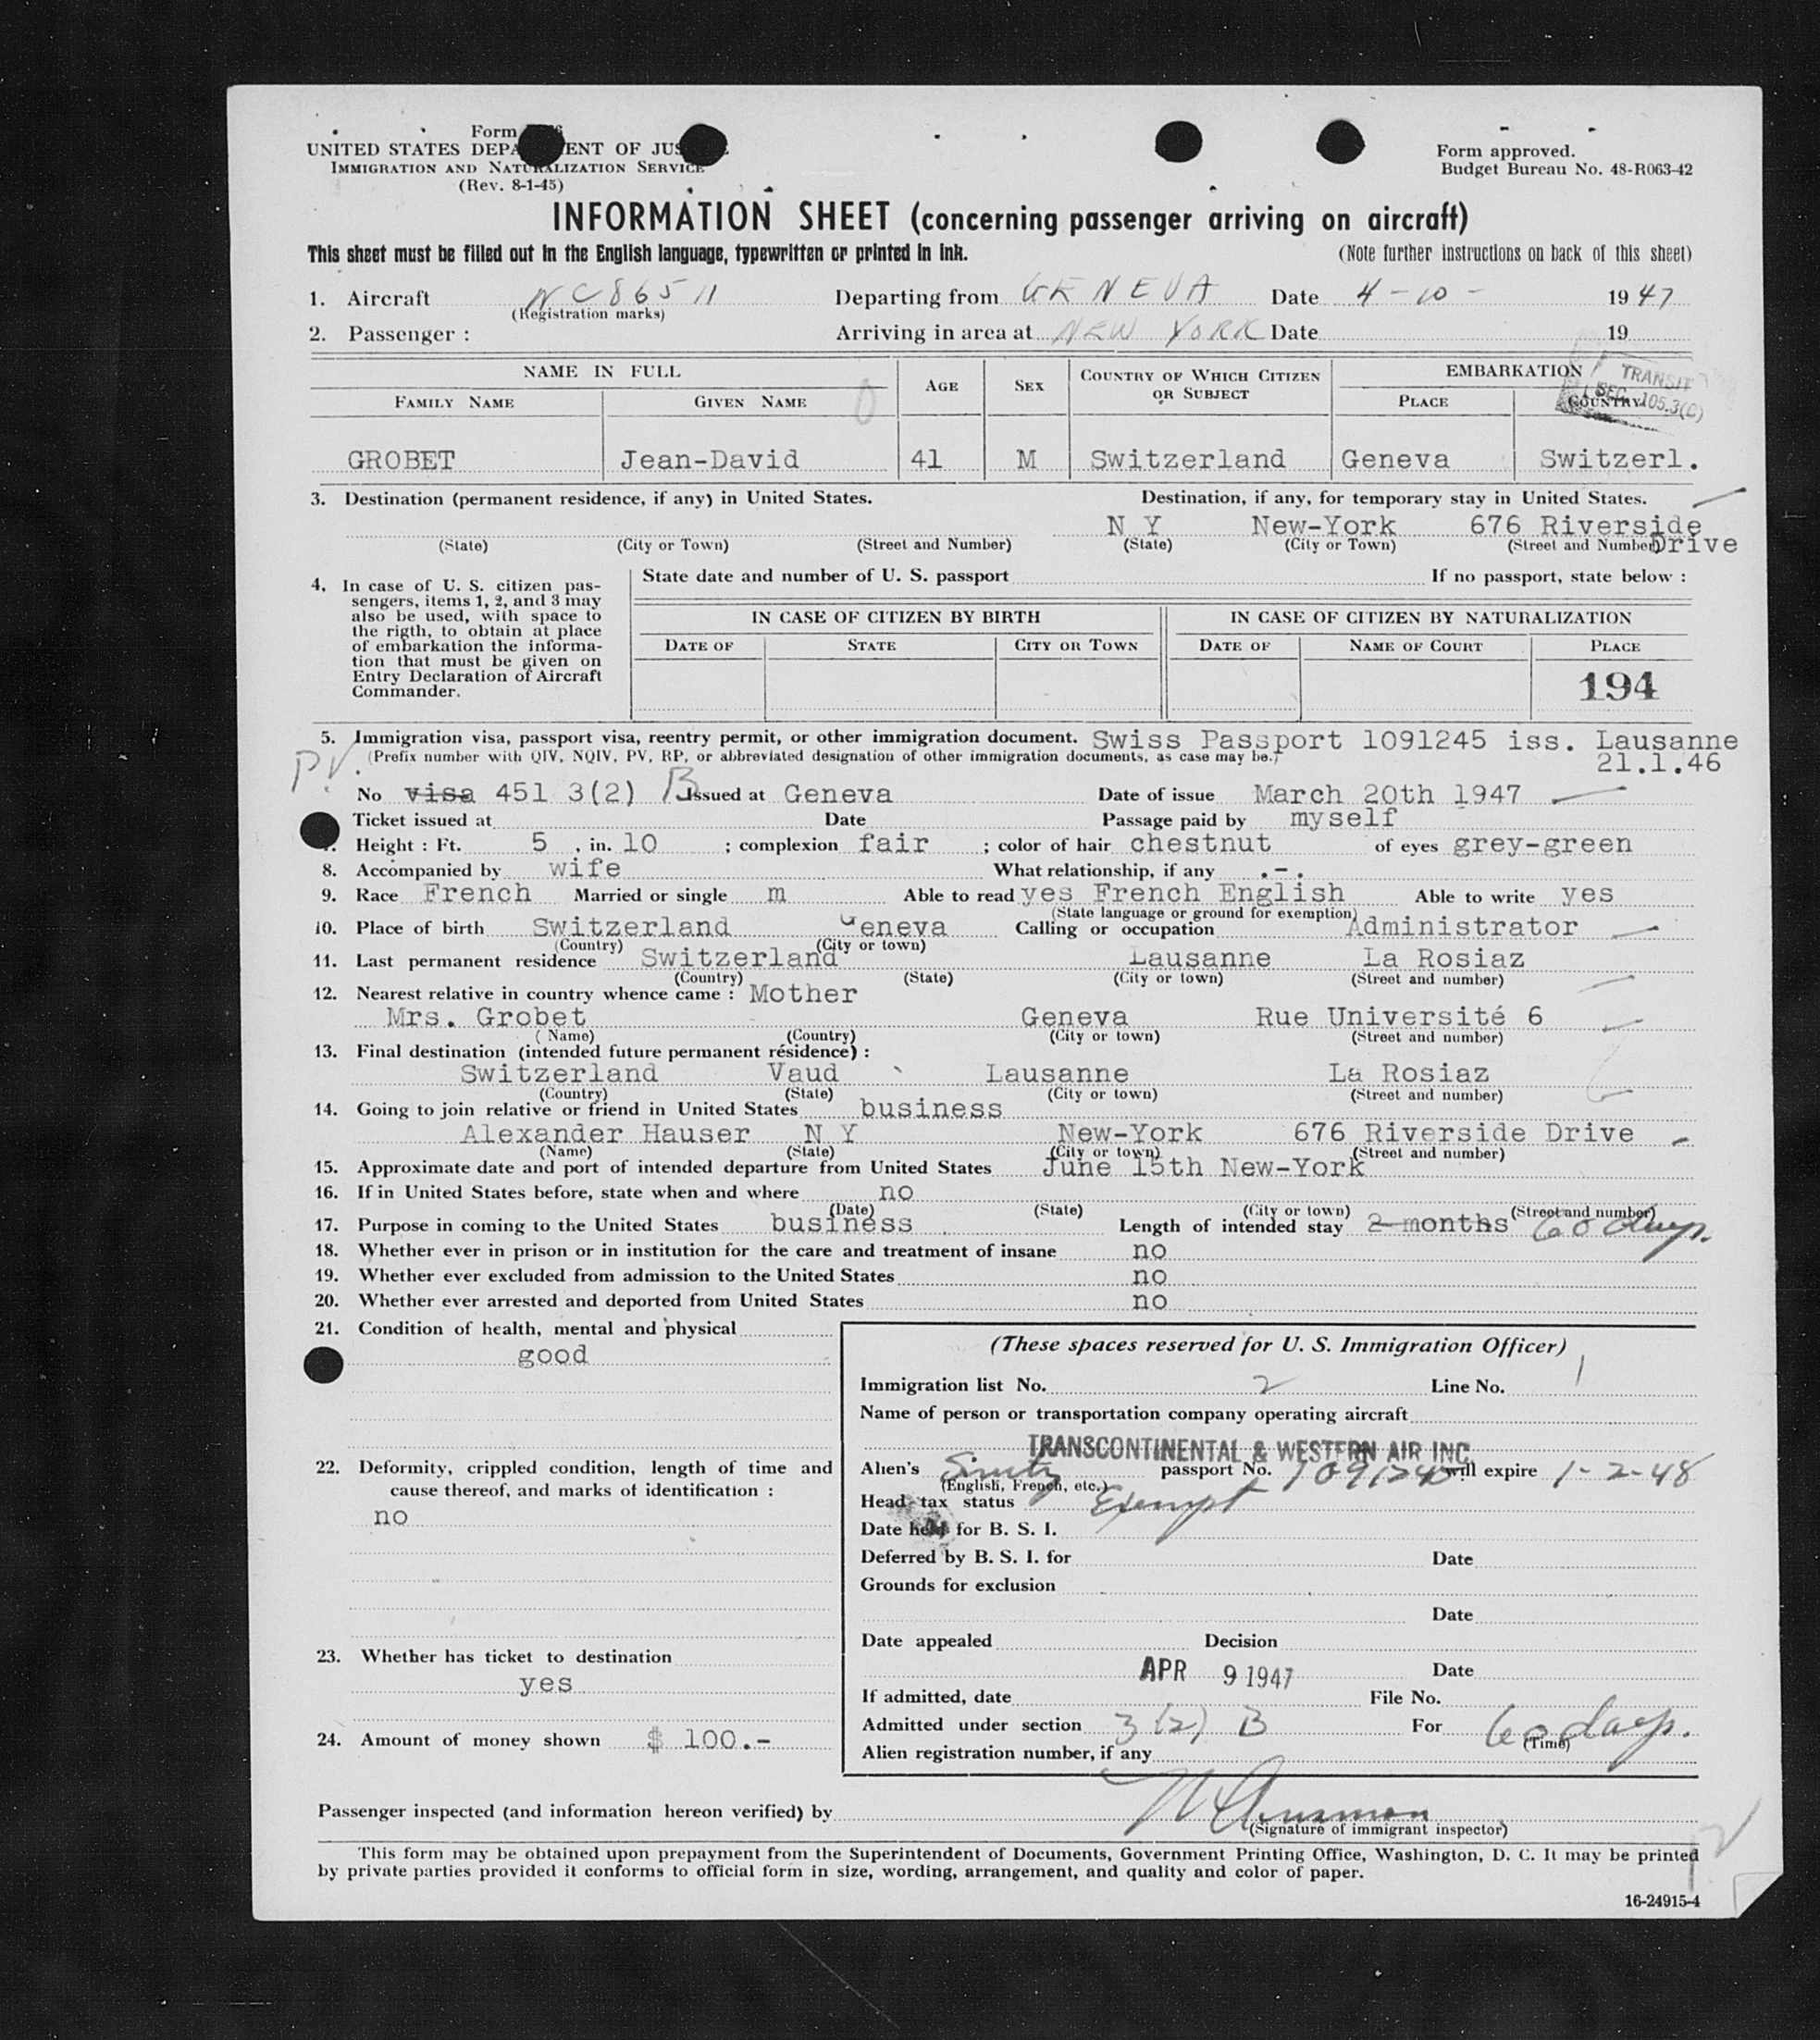 Form
UNITED STATES DEPA ENT OF JUS
IMMIGRATION AND NATURALIZATION SERVICE
(Rev. 8-1-45)
Form approved.
Budget Bureau No. 48-R063-42
INFORMATION SHEET (concerning passenger arriving on aircraft)
This sheet must be filled out in the English language, typewritten or printed in ink. (Note further instructions on back of this sheet)
1. Aircraft NC86511 Departing from GENEVA Date 4-10- 1947
(Registration marks)
2. Passenger : Arriving in area at NEW YORK Date 19
NAME IN FULL AGE SEX COUNTRY OF WHICH CITIZEN OR SUBJECT EMBARKATION
FAMILY NAME GIVEN NAME PLACE COUNTRY
TRANSIT
SEC. 105.3(C)
GROBET Jean-David 41 M Switzerland Geneva Switzerl.
3. Destination (permanent residence, if any) in United States. Destination, if any, for temporary stay in United States.
N Y New-York 676 Riverside Drive
(State) (City or Town) (Street and Number) (State) (City or Town) (Street and Number)
4. In case of U. S. citizen pas-
sengers, items 1, 2, and 3 may
also be used, with space to
the rigth, to obtain at place
of embarkation the informa-
tion that must be given on
Entry Declaration of Aircraft
Commander.
State date and number of U. S. passport If no passport, state below :
IN CASE OF CITIZEN BY BIRTH IN CASE OF CITIZEN BY NATURALIZATION
DATE OF STATE CITY OR TOWN DATE OF NAME OF COURT PLACE
194
5. Immigration visa, passport visa, reentry permit, or other immigration document. Swiss Passport 1091245 iss. Lausanne
(Prefix number with QIV, NQIV, PV, RP, or abbreviated designation of other immigration documents, as case may be.) 21.1.46
PV.
No visa 451 3(2) B Issued at Geneva Date of issue March 20th 1947
Ticket issued at Date Passage paid by myself
Height : Ft. 5 , in. 10 ; complexion fair ; color of hair chestnut of eyes grey-green
8. Accompanied by wife What relationship, if any .-.
9. Race French Married or single m Able to read yes French English Able to write yes
(State language or ground for exemption)
10. Place of birth Switzerland Geneva Calling or occupation Administrator
(Country) (City or town)
11. Last permanent residence Switzerland Lausanne La Rosiaz
(Country) (State) (City or town) (Street and number)
12. Nearest relative in country whence came : Mother
Mrs. Grobet Geneva Rue Université 6
( Name) (Country) (City or town) (Street and number)
13. Final destination (intended future permanent résidence) :
Switzerland Vaud Lausanne La Rosiaz
(Country) (State) (City or town) (Street and number)
14. Going to join relative or friend in United States business
Alexander Hauser N Y New-York 676 Riverside Drive
(Name) (State) (City or town) (Street and number)
15. Approximate date and port of intended departure from United States June 15th New-York
16. If in United States before, state when and where no
(Date) (State) (City or town) (Street and number)
17. Purpose in coming to the United States business Length of intended stay 2 months 60 days.
18. Whether ever in prison or in institution for the care and treatment of insane no
19. Whether ever excluded from admission to the United States no
20. Whether ever arrested and deported from United States no
21. Condition of health, mental and physical
good
22. Deformity, crippled condition, length of time and
cause thereof, and marks of identification :
no
23. Whether has ticket to destination
yes
24. Amount of money shown $ 100.-
(These spaces reserved for U. S. Immigration Officer)
Immigration list No. 2 Line No. 1
Name of person or transportation company operating aircraft
TRANSCONTINENTAL & WESTERN AIR INC.
Alien's passport No. 1091245 will expire 1-2-48
(English, French, etc.)
Head tax status Exempt
Date held for B. S. I.
Deferred by B. S. I. for Date
Grounds for exclusion
Date
Date appealed Decision
APR 9 1947 Date
If admitted, date File No.
Admitted under section 3(2) B For 60 days.
(Time)
Alien registration number, if any
Passenger inspected (and information hereon verified) by
(Signature of immigrant inspector)
This form may be obtained upon prepayment from the Superintendent of Documents, Government Printing Office, Washington, D. C. It may be printed
by private parties provided it conforms to official form in size, wording, arrangement, and quality and color of paper.
16-24915-4